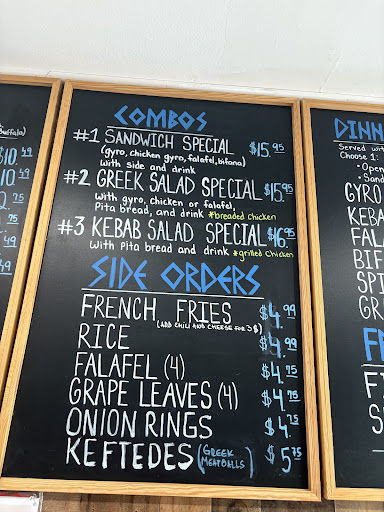 Buffalo)
10.49
10.49
.75
.49
.49
COMBOS
#1 SANDWICH SPECIAL $15.95
(gyro, chicken gyro, falafel, bifana)
with side and drink
#2 GREEK SALAD SPECIAL $15.95
with gyro, chicken or falafel,
Pita bread, and drink #breaded chicken
#3 KEBAB SALAD SPECIAL $16.95
with Pita bread and drink #grilled chicken
SIDE ORDERS
FRENCH FRIES $4.99
(ADD CHILI AND CHEESE FOR 3$)
RICE $4.99
FALAFEL (4) $4.75
GRAPE LEAVES (4) $4.75
ONION RINGS $4.75
KEFTEDES (GREEK MEATBALLS) $5.75
DINN
Served wit
Choose 1:
Open
Sand
GYRO
KEBA
FAL
BIF
SPI
GR